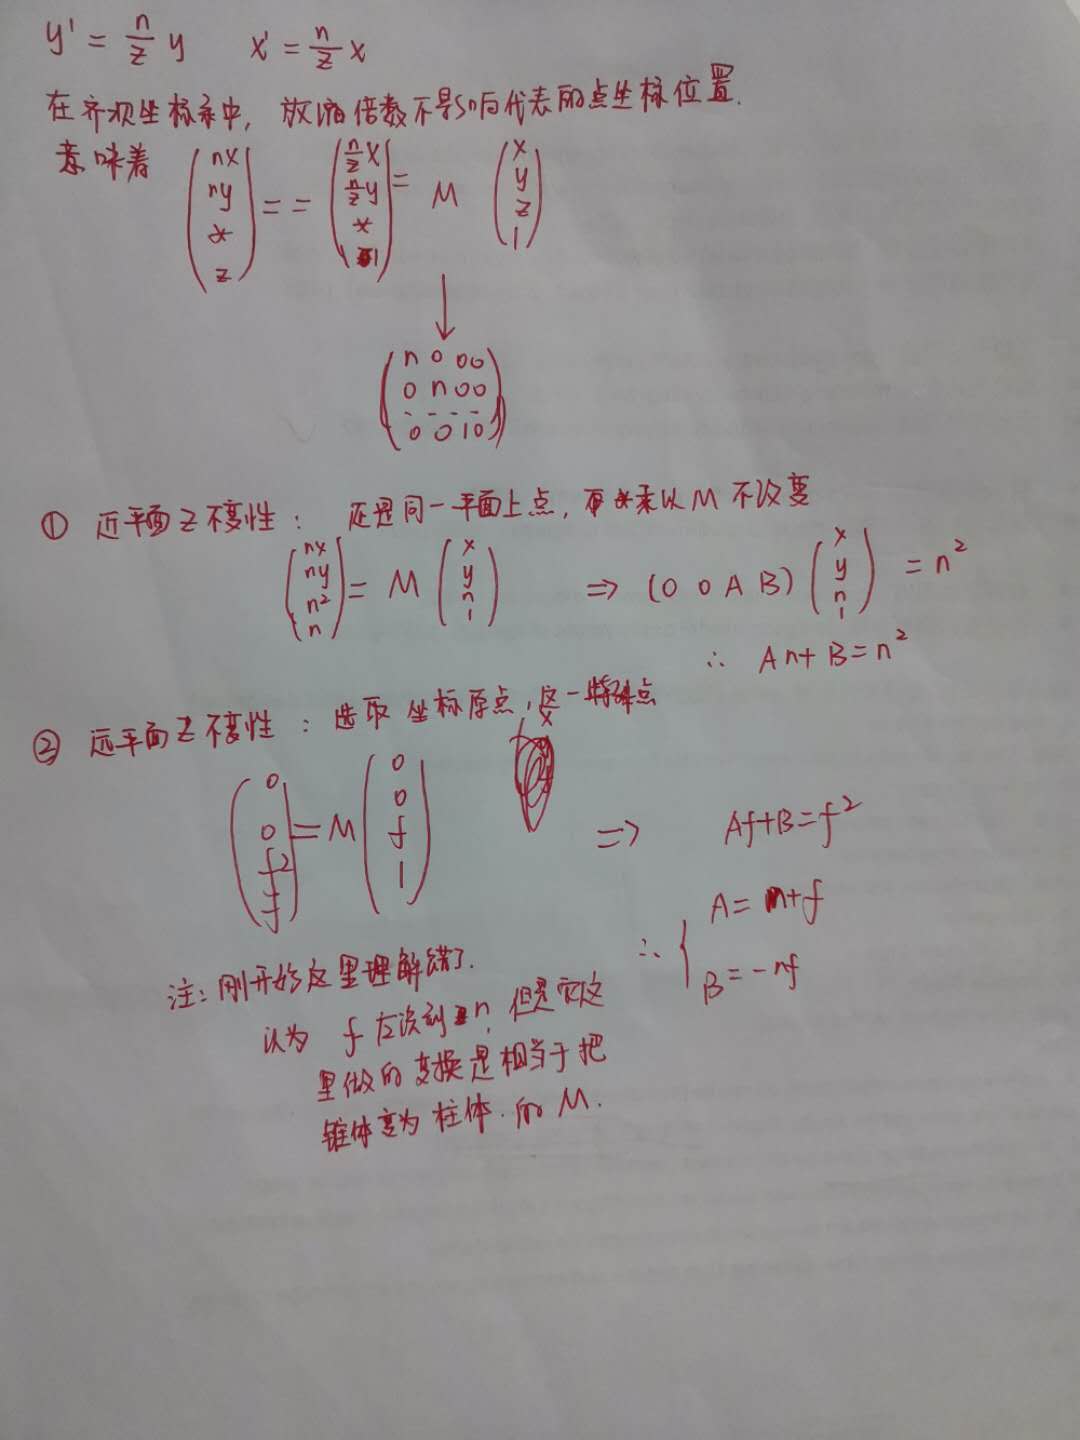 y' = n/z y    x' = n/z x
在齐次坐标系中, 放缩倍数不影响代表的点坐标位置.
意味着 (nx ny * z) == (n/z x n/z y * 1) = M (x y z 1)
↓
(n 0 0 0
0 n 0 0
- - - -
0 0 1 0)
① 近平面 z 不变性: 还是同一平面上点, 乘以 M 不改变
(nx ny n² n) = M (x y n 1) ⇒ (0 0 A B) (x y n 1) = n²
∴ An + B = n²
② 远平面 z 不变性: 选取 坐标原点, 这一特殊点
(0 0 f² f) = M (0 0 f 1) ⇒ Af+B=f²
∴ { A = n+f
B = -nf
注: 刚开始这里理解错了.
认为 f 应该到 n, 但是它这
里做的变换是相当于把
锥体变为 柱体. 的 M.